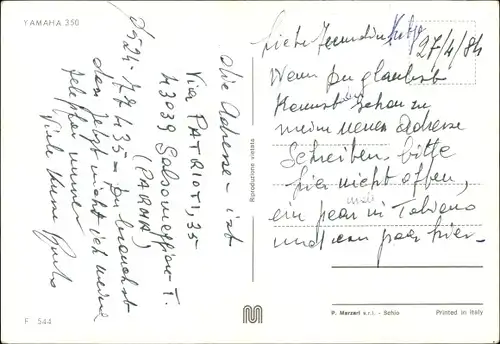 YAMAHA 350
27/4/84
Liebe Freundin Katja
Wenn Du glaubst
kannst Du schon zu
mein neuen Adresse
Schreiben. bitte
hier nicht offen,
ein paar in Tabiano
mal
und ein paar hier-
die Adresse - ist
Via PATRIOTI, 35
43039 Salsomaggiore - T.
(PARMA)
0524-77435 - Du brauchst
das jetzt nicht ich meine
telephon numer
Viele
Riproduzione vietata
F 544
M
P. Marzari s.r.l. - Schio
Printed in Italy